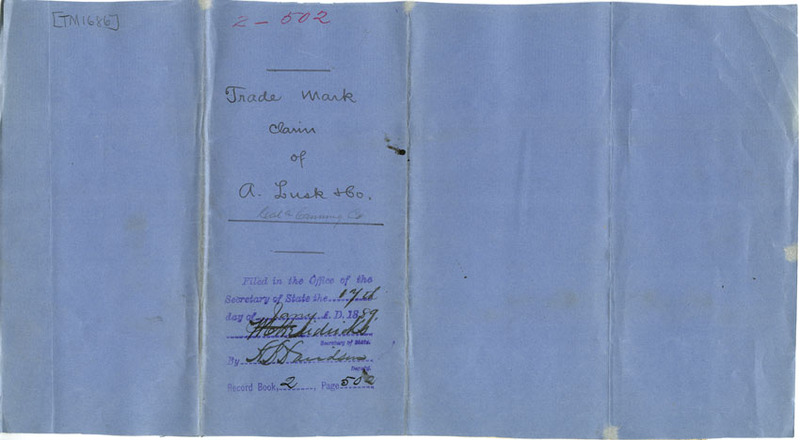 [TM1686]
2 - 502
Trade Mark
Claim
of
A. Lusk & Co.
Canning Co
Filed in the Office of the
Secretary of State the 17th
day of Jany A. D. 1889.
Secretary of State.
By Davidson
Record Book, 2, Page 502